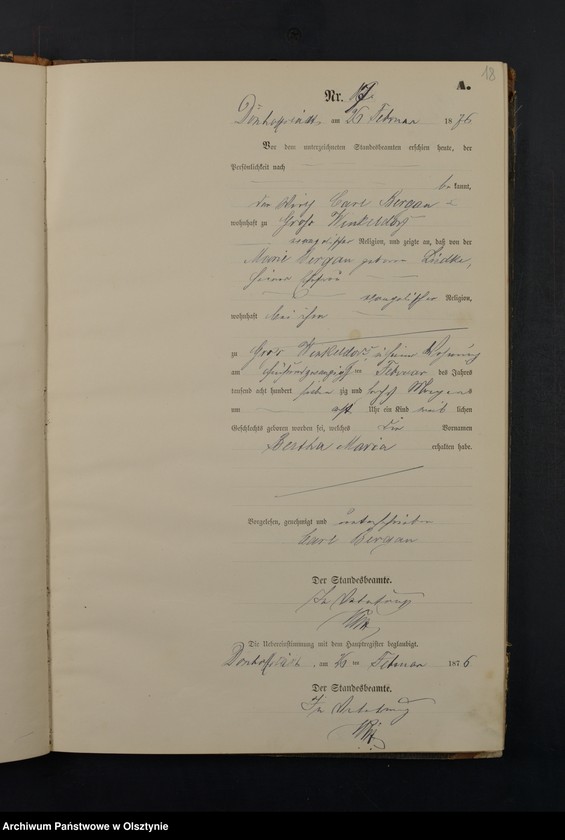 18
A.
Nr. 17.
Dönhofstädt am 26 Februar 1876
Vor dem unterzeichneten Standesbeamten erschien heute, der
Persönlichkeit nach
bekannt,
der Wirth Carl Bergan
wohnhaft zu Groß Winkeldorf
evangelischer Religion, und zeigte an, daß von der
Marie Bergan geborene Lüdke,
seiner Ehefrau
evangelischer Religion,
wohnhaft bei ihm
zu Groß Winkeldorf in seiner Wohnung
am fünfundzwanzigsten Februar des Jahres
tausend acht hundert siebenzig und sechs Morgens
um acht Uhr ein Kind weiblichen
Geschlechts geboren worden sei, welches die Vornamen
Bertha Maria erhalten habe.
Vorgelesen, genehmigt und unterschrieben
Carl Bergan
Der Standesbeamte.
In Vertretung
Die Uebereinstimmung mit dem Hauptregister beglaubigt.
Dönhofstädt, am 26 ten Februar 1876
Der Standesbeamte.
In Vertretung
Archiwum Państwowe w Olsztynie